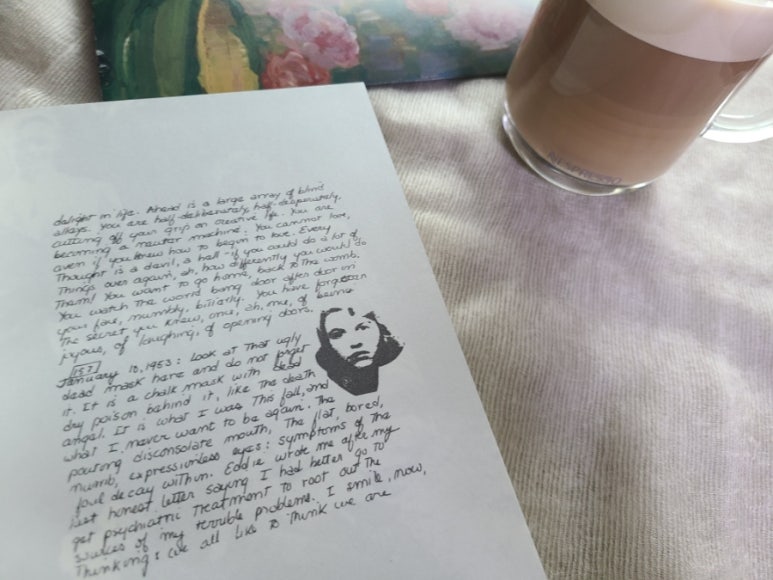 delight in life. Ahead is a large array of blind
alleys. You are half-deliberately, half-desperately,
cutting off your grip on creative life. You are
becoming a neuter machine. You cannot love,
even if you knew how to begin to love. Every
Thought is a devil, a hell - if you could do a lot of
Things over again, ah, how differently you would do
Them! You want to go home, back to the womb.
You watch the world bang door after door in
your face, numbly, bitterly. You have forgotten
The secret you knew, once, ah, once, of being
joyous, of laughing, of opening doors.
157
January 10, 1953: Look at That ugly
dead mask here and do not forget
it. It is a chalk mask with dead
dry poison behind it, like The death
angel. It is what I was This fall, and
what I never want to be again. The
pouting disconsolate mouth, The flat, bored,
numb, expressionless eyes: symptoms of The
foul decay within. Eddie wrote me after my
last honest letter saying I had better go to
get psychiatric Treatment to root out The
sources of my terrible problems. I smile, now,
Thinking: we all like to Think we are
NESPRESSO